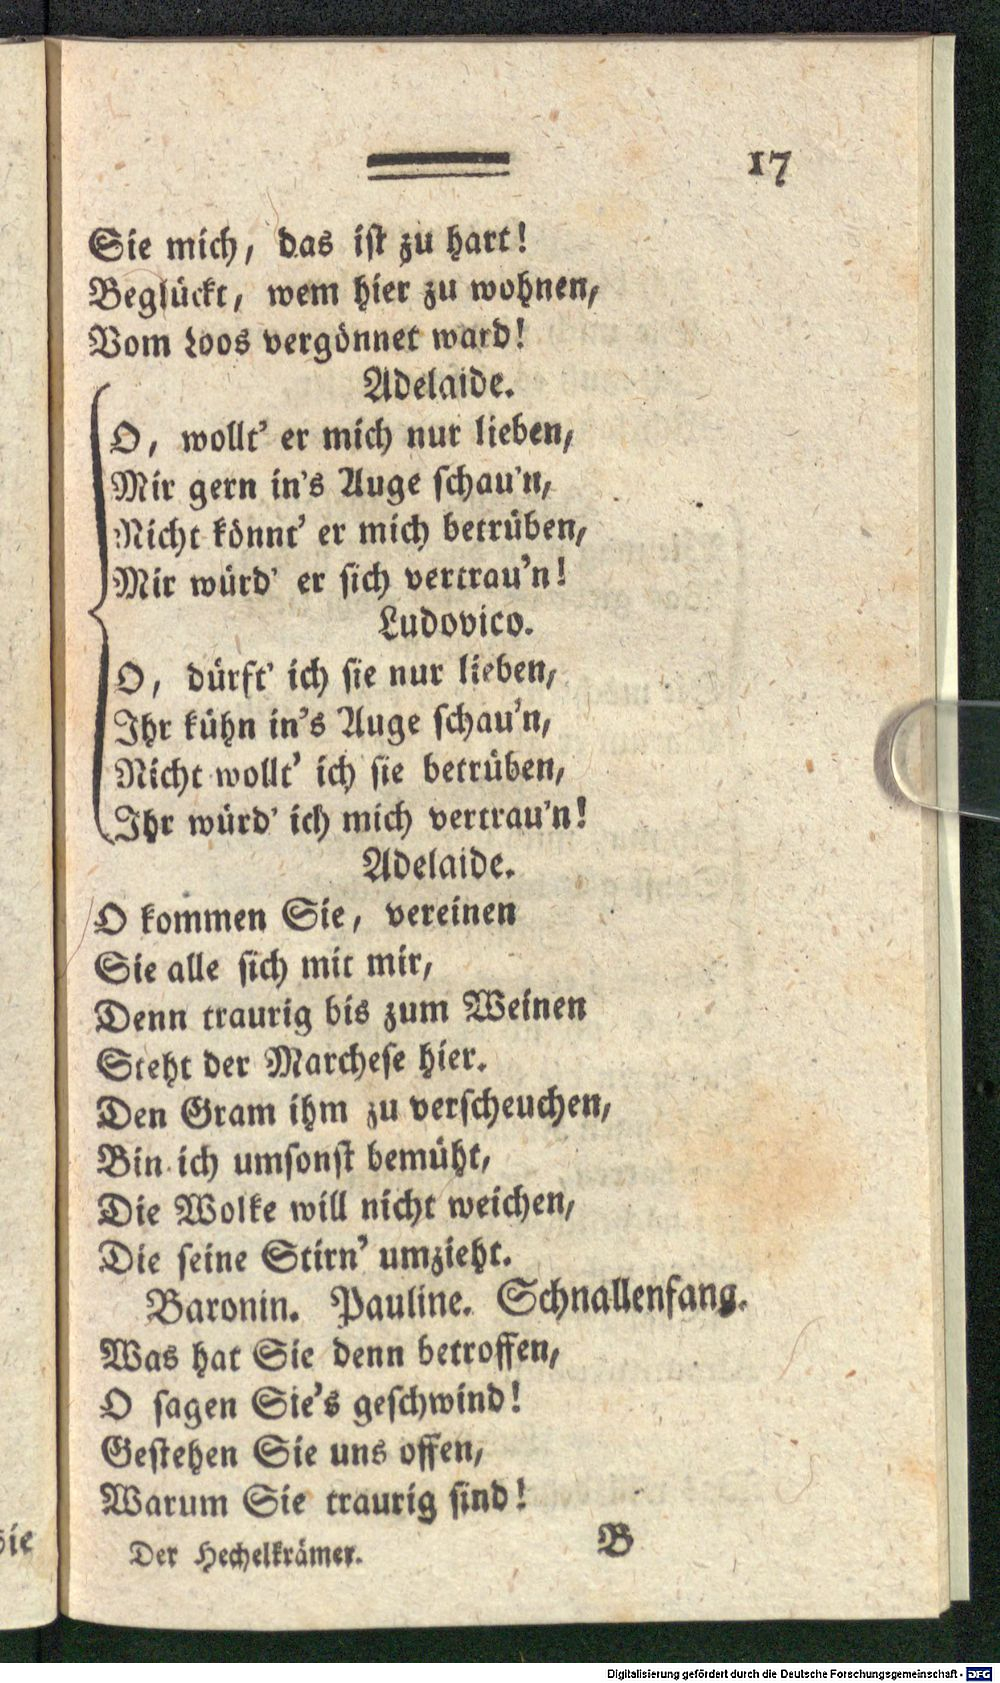 17
Sie mich, das ist zu hart!
Beglückt, wem hier zu wohnen,
Vom Loos vergönnet ward!
Adelaide.
O, wollt' er mich nur lieben,
Mir gern in's Auge schau'n,
Nicht könnt' er mich betrüben,
Mir würd' er sich vertrau'n!
Ludovico.
O, dürft' ich sie nur lieben,
Ihr kühn in's Auge schau'n,
Nicht wollt' ich sie betrüben,
Ihr würd' ich mich vertrau'n!
Adelaide.
O kommen Sie, vereinen
Sie alle sich mit mir,
Denn traurig bis zum Weinen
Steht der Marchese hier.
Den Gram ihm zu verscheuchen,
Bin ich umsonst bemüht,
Die Wolke will nicht weichen,
Die seine Stirn' umzieht.
Baronin. Pauline. Schnallenfang.
Was hat Sie denn betroffen,
O sagen Sie's geschwind!
Gestehen Sie uns offen,
Warum Sie traurig sind!
Der Hechelkrämer. B
Digitalisierung gefördert durch die Deutsche Forschungsgemeinschaft - DFG